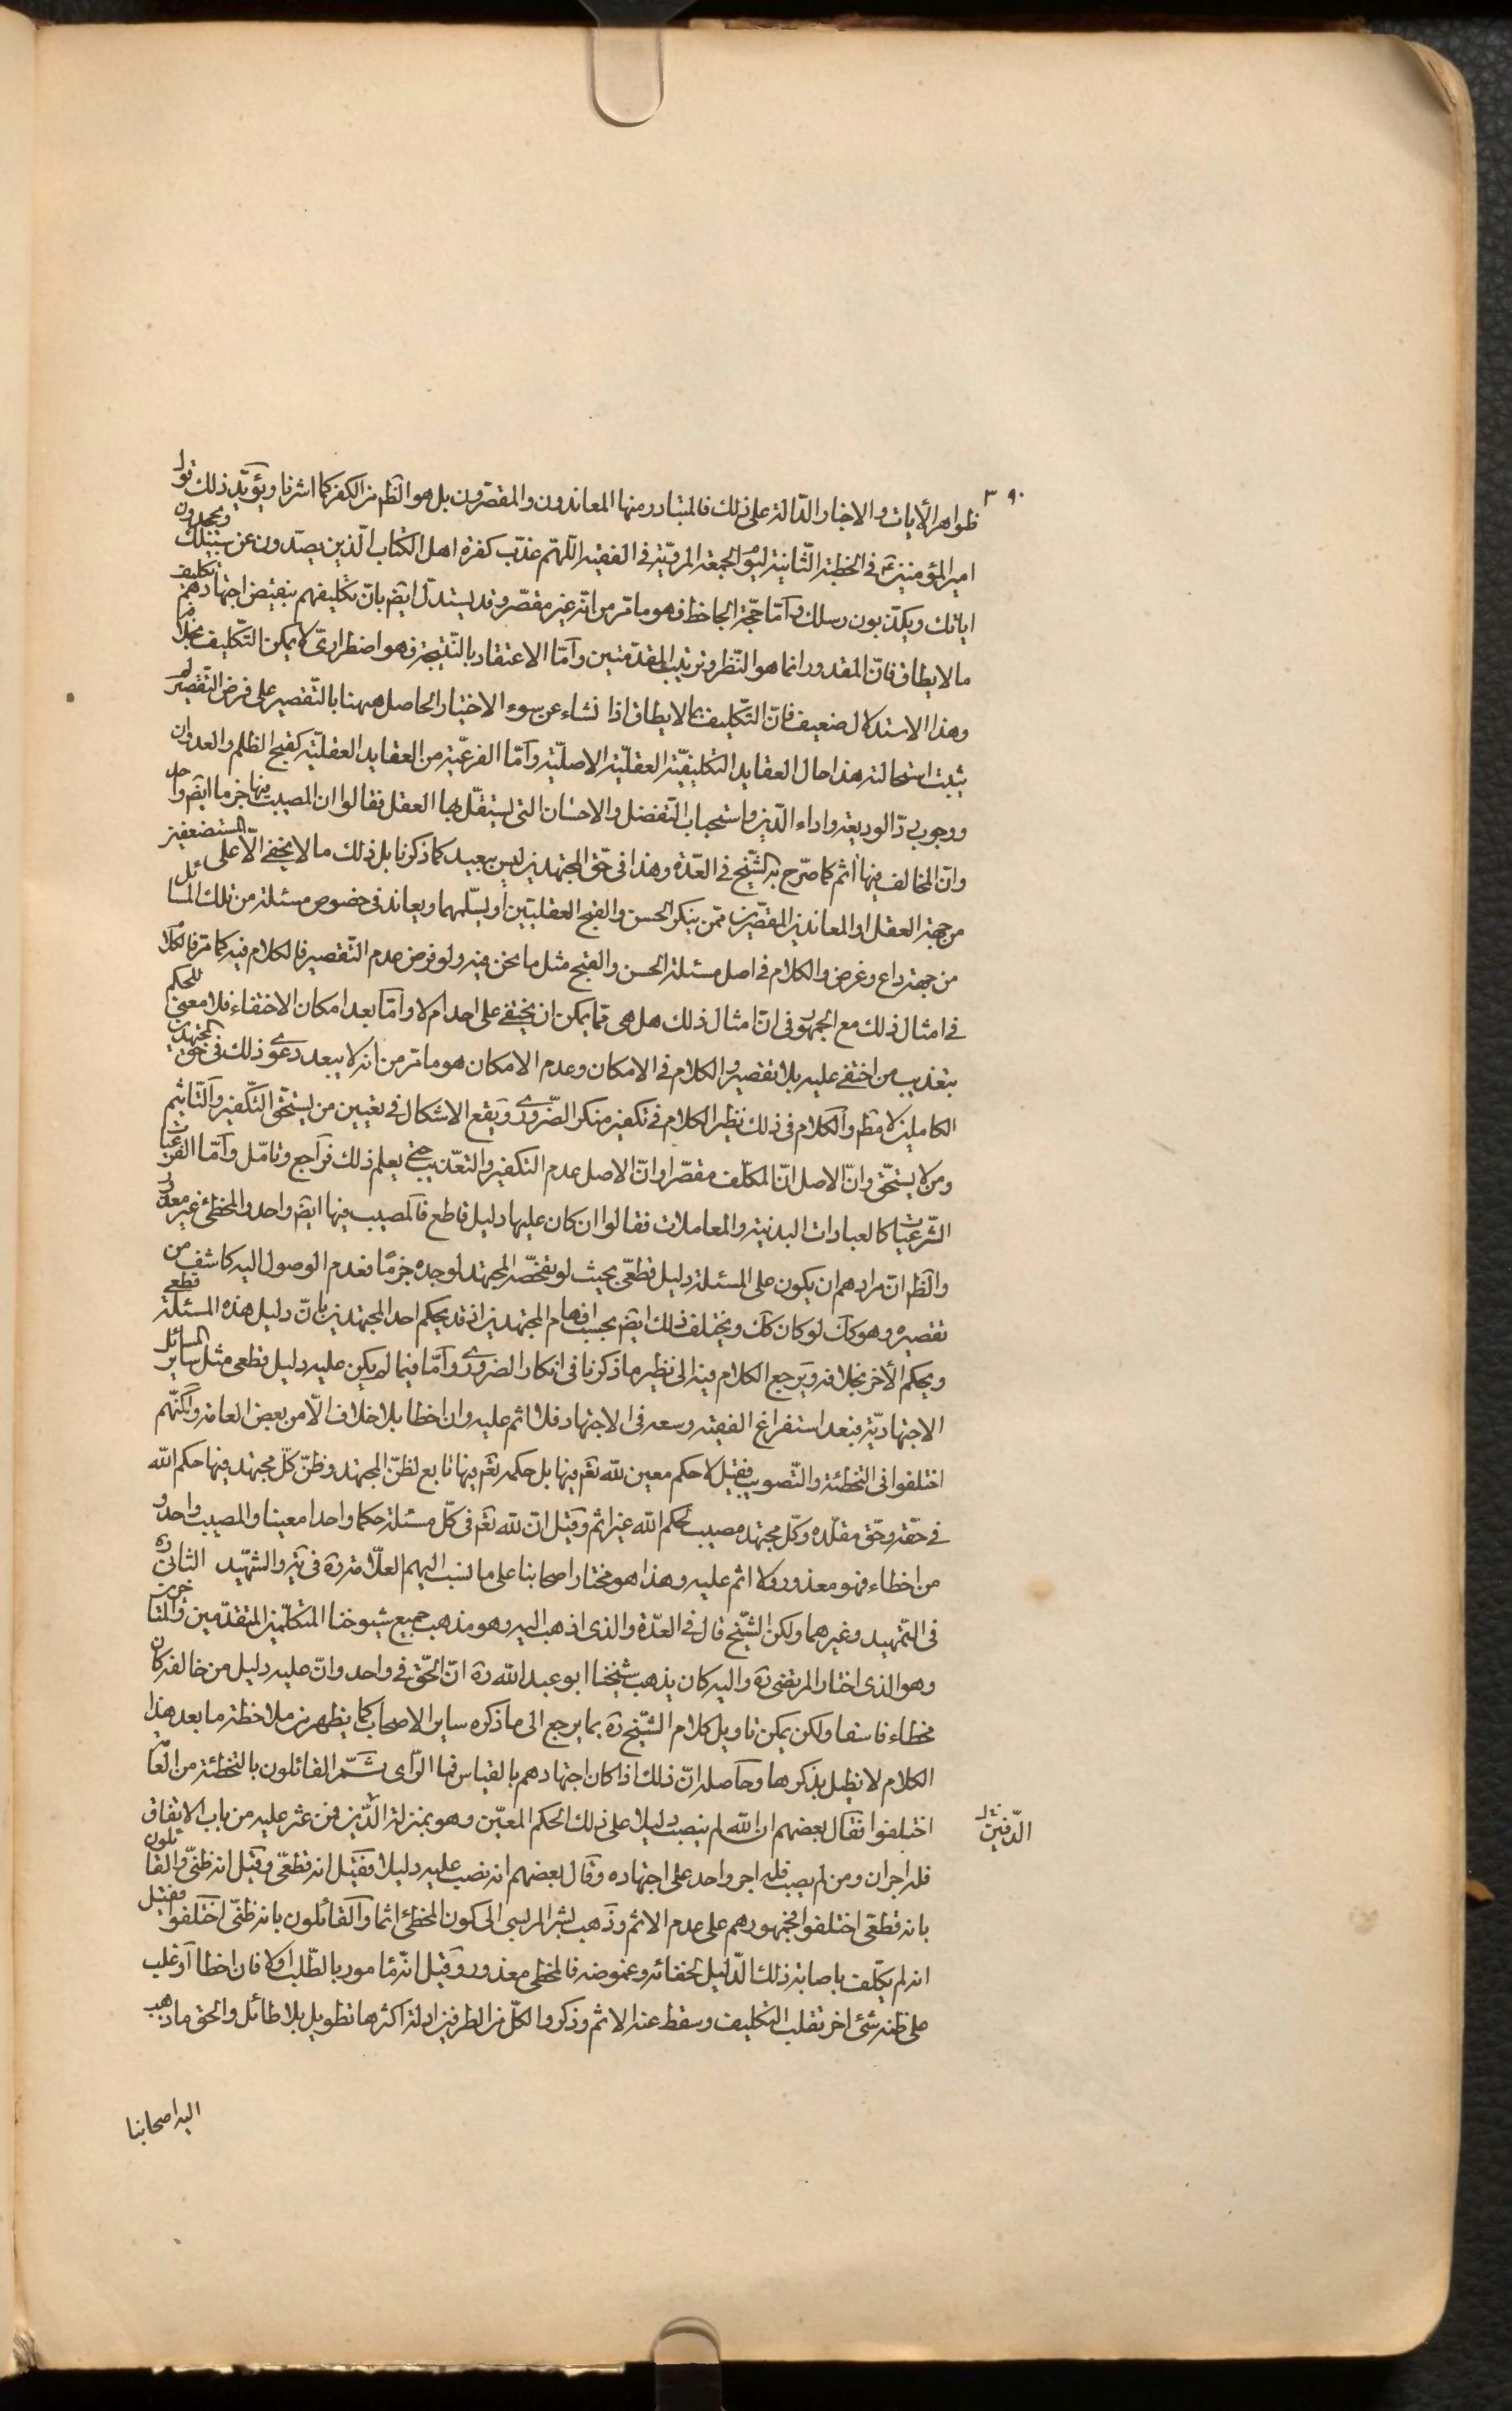 ٣٩٠
ظواهر الأيات والاخبار الدّالة على ذلك فالمتبادر منها المعاندون والمقصّرون بل هو الظم من الكفر كما اشرنا ويؤيّد ذلك قول
امير المؤمنين ع في الخطبة الثّانية ليوم الجمعة المرويّة في الفقيه اللّهمّ عذّب كفرة اهل الكتاب الّذين يصدّون عن سبيلك ويجحدون
اياتك ويكذّبون رسلك وامّا حجّة الجاحظ فهو ما مّر من انّه غير مقصّر وقد يستدلّ ايضم بانّ تكليفهم بنقيض اجتهادهم تكليف
ما لا يطاق فانّ المقدور انما هو النّظر وترتيب المقدّمتين وامّا الاعتقاد بالنّتيجة فهو اضطراريّ لا يمكن التّكليف بخلافه
وهذا الاستدلال ضعيف فانّ التّكليف بما لا يطاق اذا نشاء عن سوء الاختيار الحاصل ههنا بالتّقصير على فرض التّقصير لم
يثبت استحالته هذا حال العقايد التكليفيّة العقليّة الاصليّة وامّا الفرعيّة من العقايد العقليّة كقبح الظلم والعدوان
ووجوب ردّ الوديعة واداء الدّين واستحباب التّفضل والاحسان التى يستقلّ بها العقل فقالوا ان المصيب فيها جزما ايضم واحد
وانّ المخالف فيها اثم كما صرّح به الشّيخ في العدّة وهذا في حقّ المجتهدين ليس ببعيد كما ذكرنا بل ذلك ما لا يخفى الّا على المستضعفين
من جهة العقل او المعاندين المقصّرين ممّن ينكر الحسن والقبح العقليّين او يسلّمهما ويعاند فى خصوص مسئلة من تلك المسائل
من جهة داع وغرض والكلام فى اصل مسئلة الحسن والقبح مثل ما نحن فيه ولو فرض عدم التّقصير فالكلام فيه كما مّر فالكلام
في امثال ذلك مع الجمهور فى انّ امثال ذلك هل هى ممّا يمكن ان يختفى على احد ام لا وامّا بعد امكان الاختفاء فلا معنى للحكم
بتعذيب من اختفى عليه بلا تقصير والكلام فى الامكان وعدم الامكان هو ما مّر من انه لا يبعد دعوى ذلك فى حقّ المجتهدين
الكاملين لا مطم والكلام فى ذلك نظير الكلام فى تكفير منكر الضّرورى ويقع الاشكال فى تعيين من يستحقّ التّكفير والتّاثيم
ومن لا يستحقّ وانّ الاصل انّ المكلّف مقصّر او انّ الاصل عدم التكفير والتعذيب حتى يعلم ذلك فراجع وتامّل وامّا الفرعيّات
الشّرعيّات كالعبادات البدنية والمعاملات فقالوا ان كان عليها دليل قاطع فالمصيب فيها ايضم واحد والمخطئ غير معذور
والظم انّ مرادهم ان يكون على المسئلة دليل قطعّى بحيث لو تفحّصه المجتهد لوجده جزمًا فعدم الوصول اليه كاشف من
تقصيره وهو كك لو كان كك ويختلف ذلك ايضم بحسب افهام المجتهدين اذ قد يحكم احد المجتهدين بانّ دليل هذه المسئلة قطعى
ويحكم الأخر بخلافه ويرجع الكلام فيه الى نظير ما ذكرنا فى انكار الضرورى وامّا فيما لم يكن عليه دليل قطعى مثل ساير المسائل
الاجتهاديّة فبعد استفراغ الفقيه وسعه فى الاجتهاد فلا اثم عليه وان اخطا بلا خلاف الّا من بعض العامة ولكنّهم
اختلفوا فى التخطئة والتّصويب فقيل لا حكم معين لله تعم فيها بل حكمه تعم فيها تابع لظنّ المجتهد وظنّ كلّ مجتهد فيها حكم الله
فى حقّه وحقّ مقلّده وكلّ مجتهد مصيب لحكم الله غير اثم وقيل انّ لله تعم فى كلّ مسئلة حكما واحدا معينا والمصيب واحد و
من اخطاء فهو معذور ولا اثم عليه وهذا هو مختار اصحابنا على ما نسب اليهم العلّامة ره فى يه والشّهيد الثانى ره
فى التّمهيد وغيرهما ولكن الشّيخ قال فى العدّة والذى اذهب اليه وهو مذهب جميع شيوخنا المتكلّمين المتقدّمين والمتاخرين
وهو الذى اختار المرتضى ره واليه كان يذهب شيخنا ابو عبد الله ره انّ الحقّ فى واحد وانّ عليه دليل من خالفه كان
مخطاء فاسقا ولكن يمكن تاويل كلام الشّيخ ره بما يرجع الى ما ذكره ساير الاصحاب كما يظهر من ملاحظة ما بعد هذا
الكلام لا نطيل بذكرها وحاصله انّ ذلك اذا كان اجتهادهم بالقياس فما الرّاى ثمّ القائلون بالتخطئة من العامة
اختلفوا فقال بعضهم ان الله لم ينصب دليلا على ذلك الحكم المعيّن وهو بمنزلة الدّين فمن عثر عليه من باب الاتفاق
الدّفين
فله اجران ومن لم يصب فله اجر واحد على اجتهاده وقال بعضهم انه نصب عليه دليلا فقيل انه قطعّى وقيل انه ظنّى والقائلون
بانه قطعّى اختلفوا فجمهورهم على عدم الاثم وذهب بشر المريسى الى كون المخطئ اثما والقائلون بانه ظنّى اختلفوا فقيل
انه لم يكلّف باصابة ذلك الدّليل لخفائه وغموضه فالمخطى معذور وقيل انّه مامور بالطّلب اولا فان اخطا او غلب
على ظنه شئ اخر تقلب التكليف وسقط عنه الاثم وذكروا لكلّ من الطرفين ادلة اكثرها تطويل بلا طائل والحق ما ذهب
اليه اصحابنا